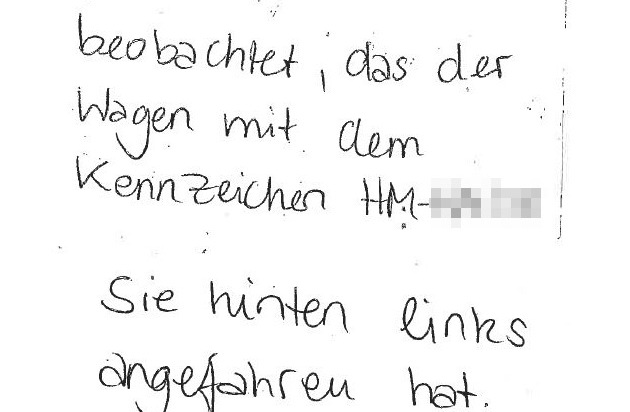 beobachtet, das der
Wagen mit dem
Kennzeichen HM-
Sie hinten links
angefahren hat.